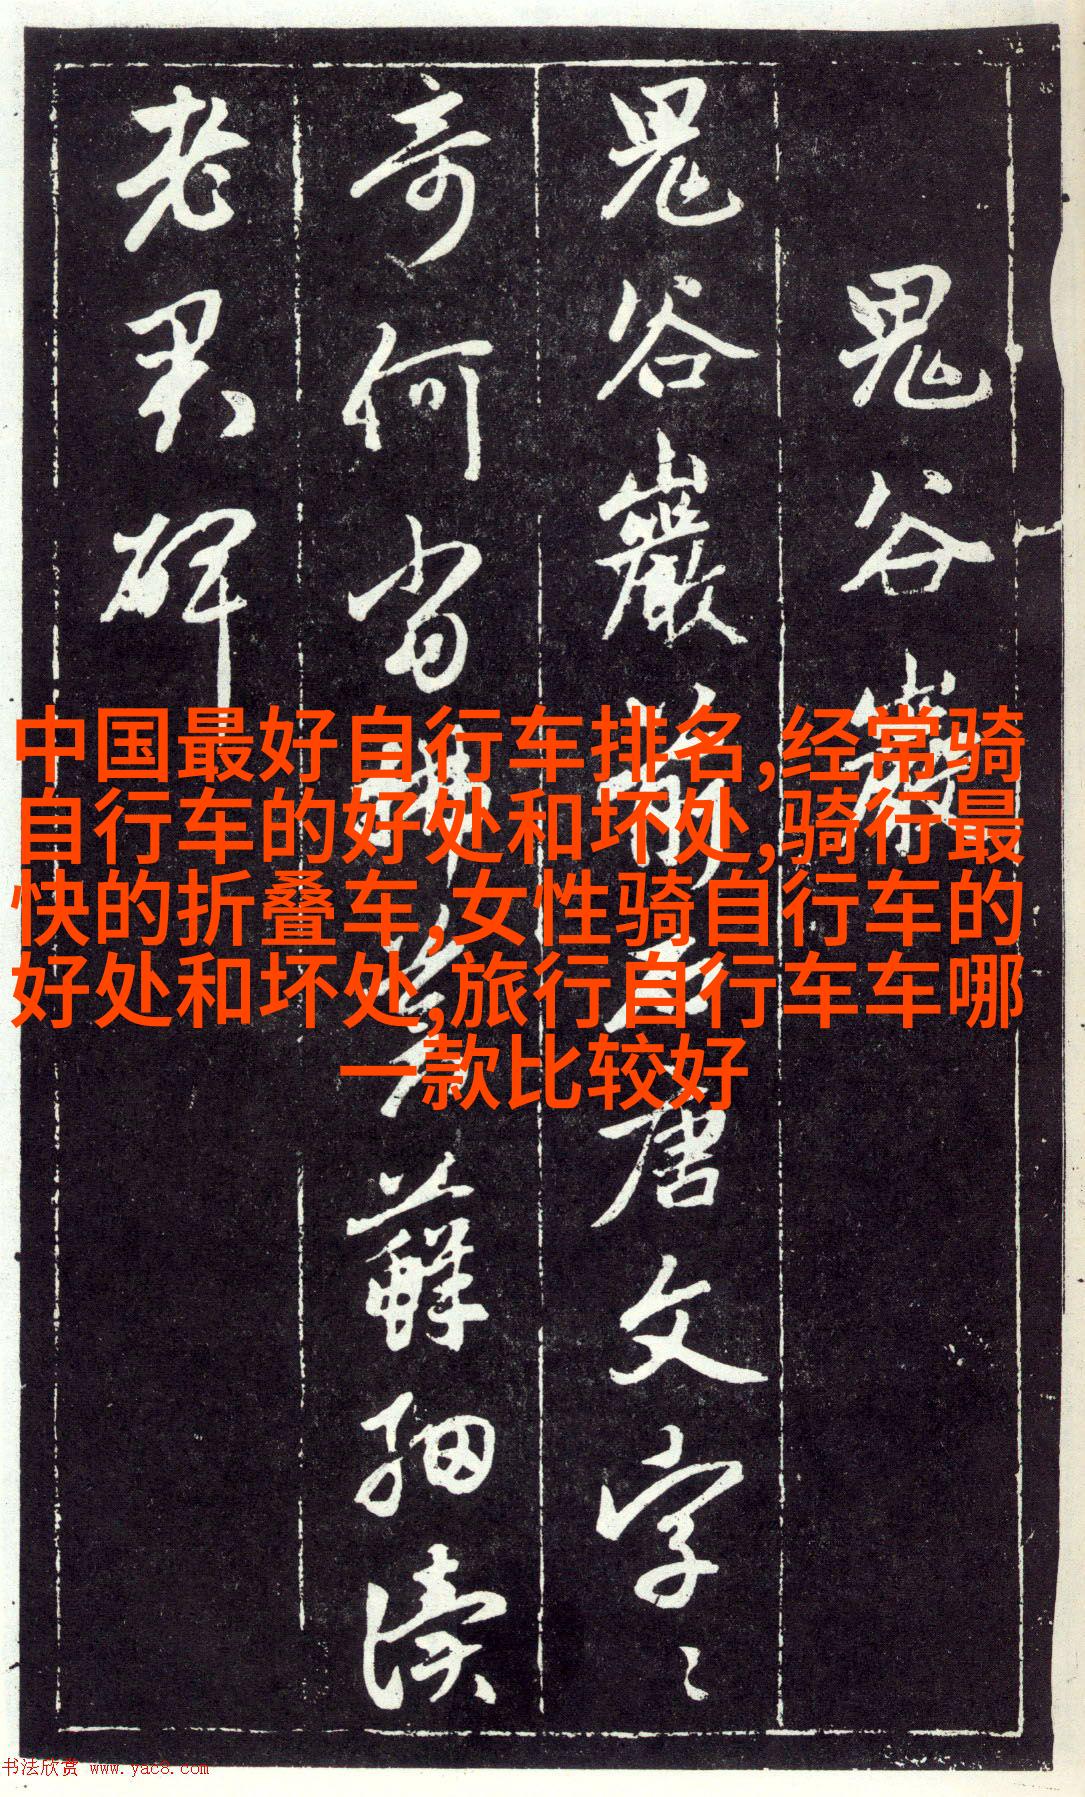 鬼谷巖
鬼谷巖前唐文字〻
奇何當掃蘚細讀
老君碑
中国最好自行车排名,经常骑
自行车的好处和坏处,骑行最
快的折叠车,女性骑自行车的
好处和坏处,旅行自行车车哪
一款比较好
书法欣赏 www.yac8.com